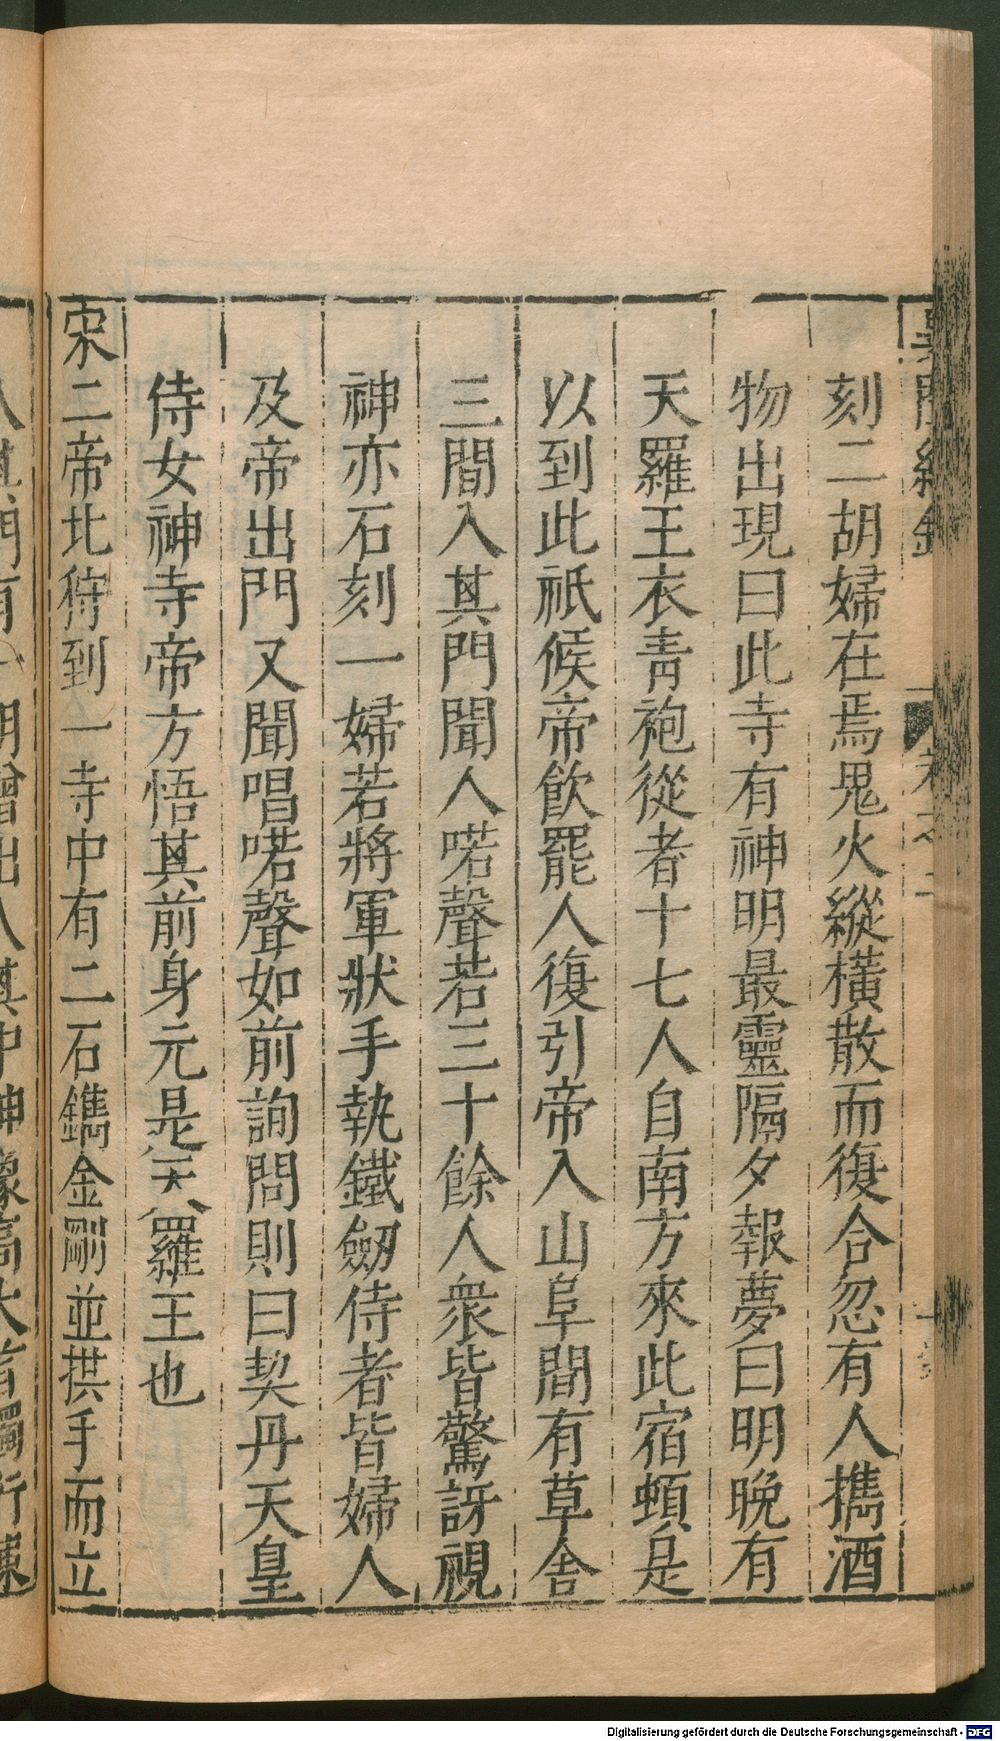 刻二胡婦在焉鬼火縱橫散而復合忽有人攜酒
物出現曰此寺有神明最靈隔夕報夢曰明晚有
天羅王衣青袍從者十七人自南方來此宿頓是
以到此祇候帝飲罷人復引帝入山阜間有草舍
三間入其門聞人喏聲若三十餘人衆皆驚訝視
神亦石刻一婦若將軍狀手執鐵劒侍者皆婦人
及帝出門又聞唱喏聲如前詢問則曰契丹天皇
侍女神寺帝方悟其前身元是天羅王也
宋二帝北狩到一寺中有二石鐫金剛並拱手而立
Digitalisierung gefördert durch die Deutsche Forschungsgemeinschaft - DFG